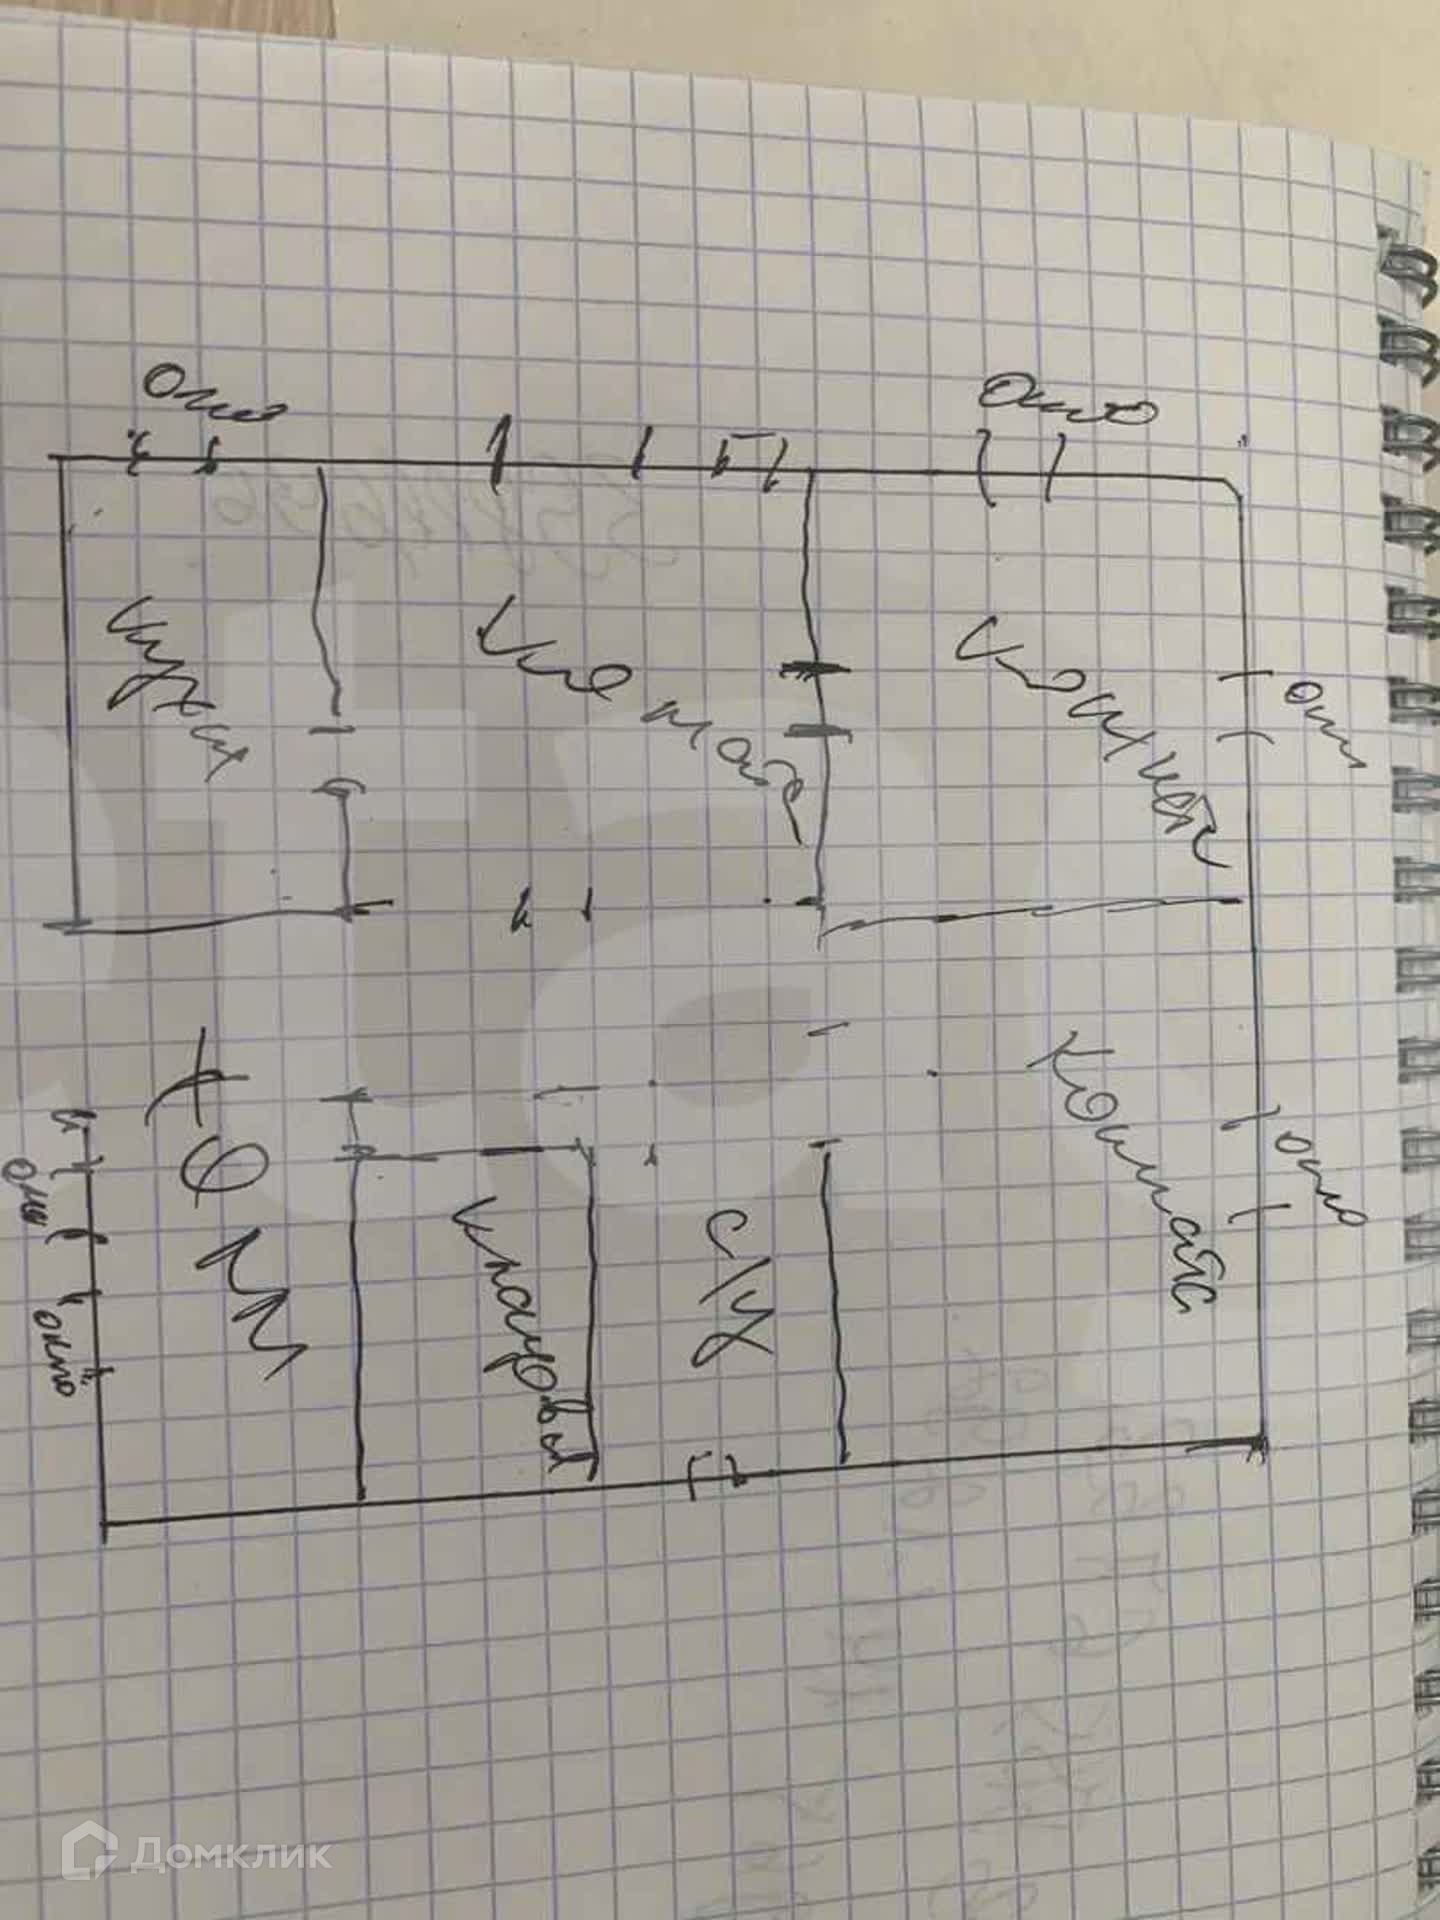 Окно
Окно
Кухня
Комната
Комната
окно
окно
Холл
Кладовая
с/у
Комната
окно
окно
Домклик